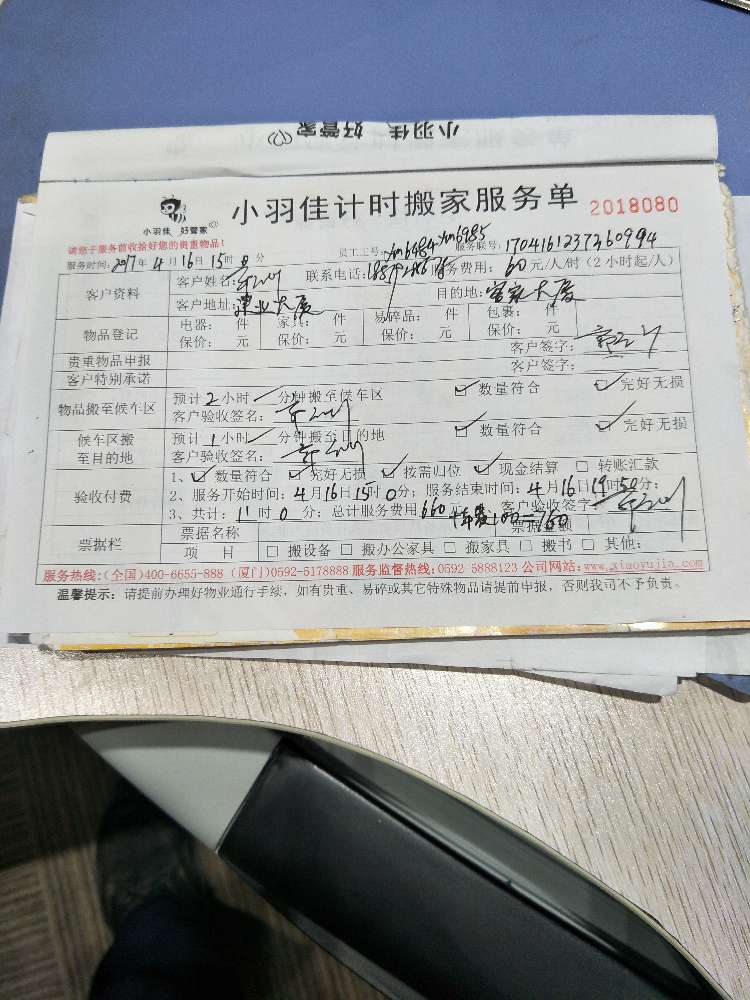 小羽佳 好管家
小羽佳 好管家
小羽佳计时搬家服务单 2018080
请您于服务前收拾好您的贵重物品!
员工工号: xm6484 xm6985 服务联号: 1704161237260994
服务时间: 2017年4月16日15时 分
客户资料 客户姓名: 联系电话: 服务费用: 60元/人/时(2小时起/人)
客户地址: 建业大厦 目的地: 客家大厦
物品登记 电器: 件 家具: 件 易碎品: 件 包裹: 件
保价: 元 保价: 元 保价: 元 保价: 元
贵重物品申报 客户签字:
客户特别承诺 客户签字:
物品搬至候车区 预计2小时 分钟搬至候车区 ☑ 数量符合 ☑ 完好无损
客户验收签名:
候车区搬至目的地 预计1小时 分钟搬至目的地 ☑ 数量符合 ☑ 完好无损
客户验收签名:
验收付费 1、☑ 数量符合 ☑ 完好无损 ☑ 按需归位 ☑ 现金结算 □ 转账汇款
2、服务开始时间: 4月16日15时0分; 服务结束时间: 4月16日19时50分;
3、共计: 11时0分; 总计服务费用660元 +车费100=760 客户验收签字:
票据栏 票据名称 票据金额
项 目 □ 搬设备 □ 搬办公家具 □ 搬家具 □ 搬书 □ 其他:
服务热线:(全国)400-6655-888 (厦门)0592-5178888 服务监督热线:0592-5888123 公司网站:www.xiaoyujia.com
温馨提示: 请提前办理好物业通行手续, 如有贵重、易碎或其它特殊物品请提前申报, 否则我司不予负责。